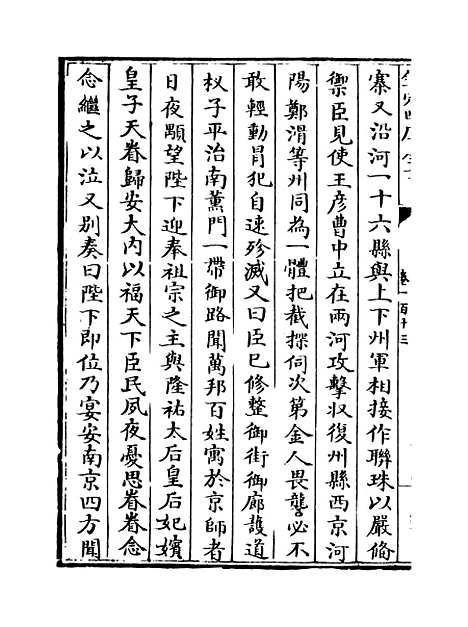 寨又沿河一十六縣與上下州軍相接作聯珠以嚴俻
禦臣見使王彦曹中立在兩河攻擊収復州縣西京河
陽鄭滑等州同為一體把截探伺次第金人畏讋必不
敢輕動冐犯自速殄滅又曰臣已修整御街御廊護道
杈子平治南薫門一帶御路聞萬邦百姓寓於京師者
日夜顒望陛下迎奉祖宗之主與隆祐太后皇后妃嬪
皇子天眷歸安大内以福天下臣民夙夜憂思眷眷念
念繼之以泣又别奏曰陛下即位乃宴安南京四方聞
卷一百十三